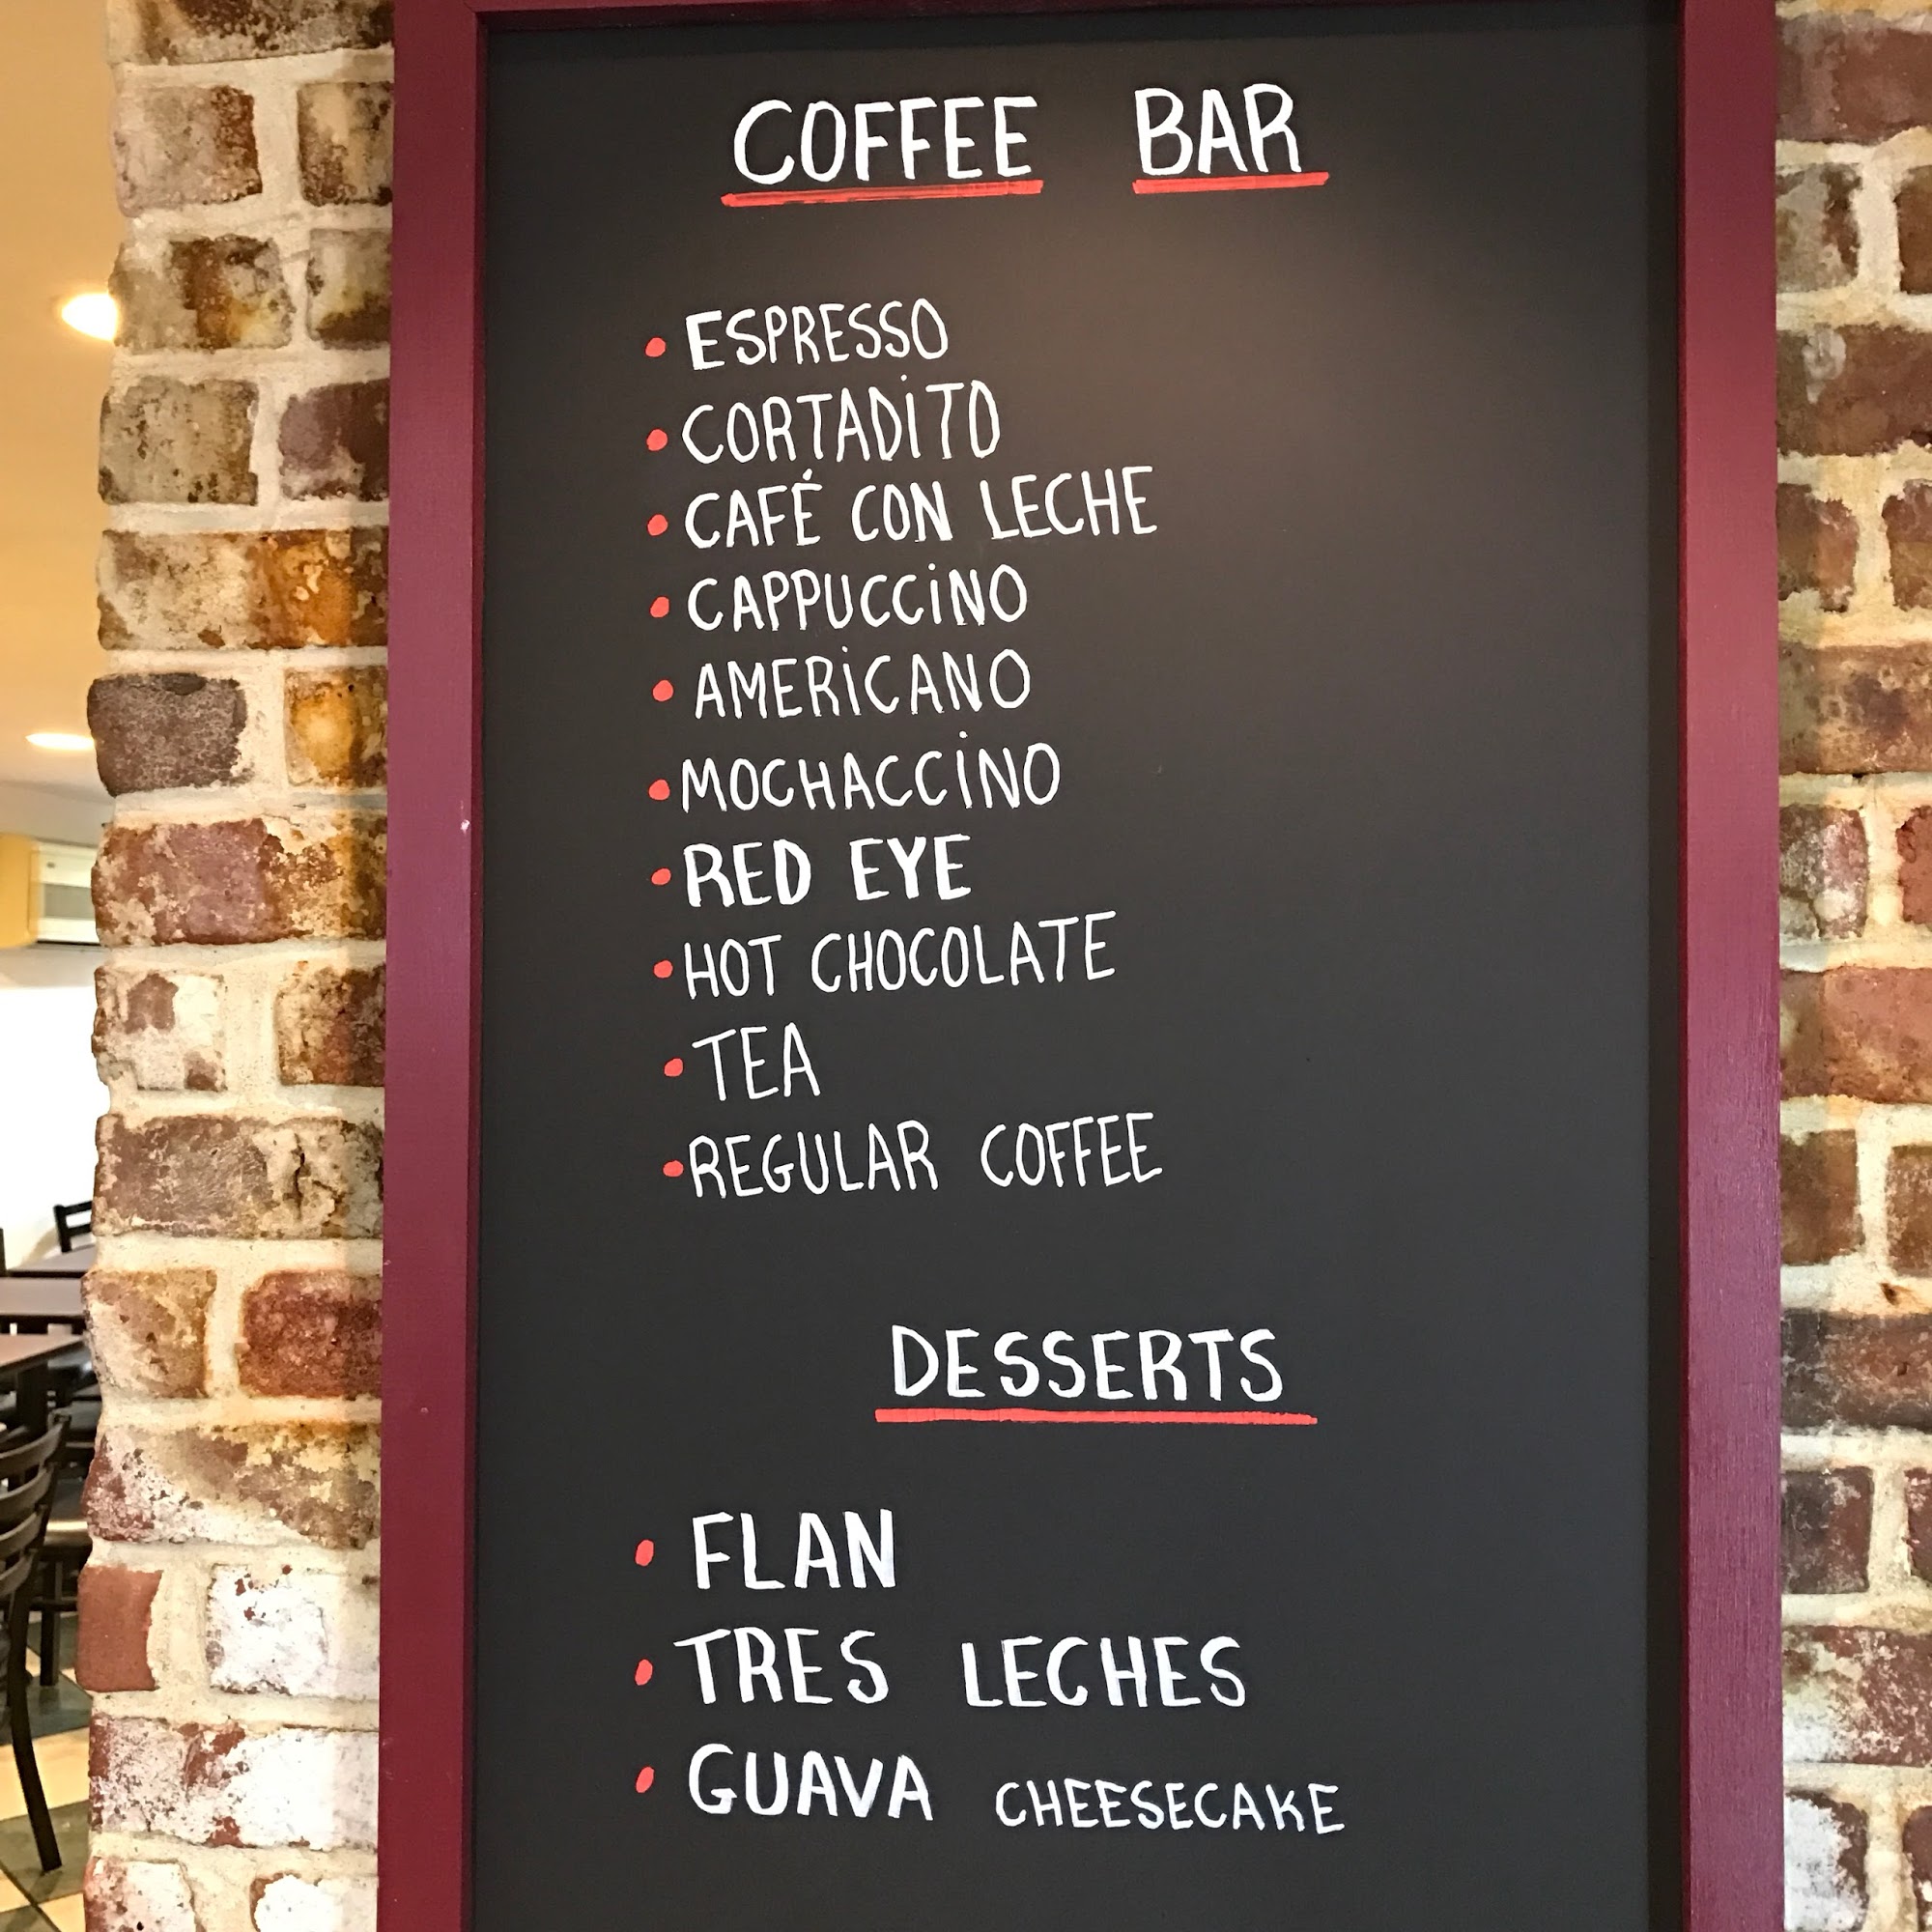 COFFEE BAR
• ESPRESSO
• CORTADiTO
• CAFÉ CON LECHE
• CAPPUCCiNO
• AMERiCANO
• MOCHACCiNO
• RED EYE
• HOT CHOCOLATE
• TEA
• REGULAR COFFEE
DESSERTS
• FLAN
• TRES LECHES
• GUAVA CHEESECAKE